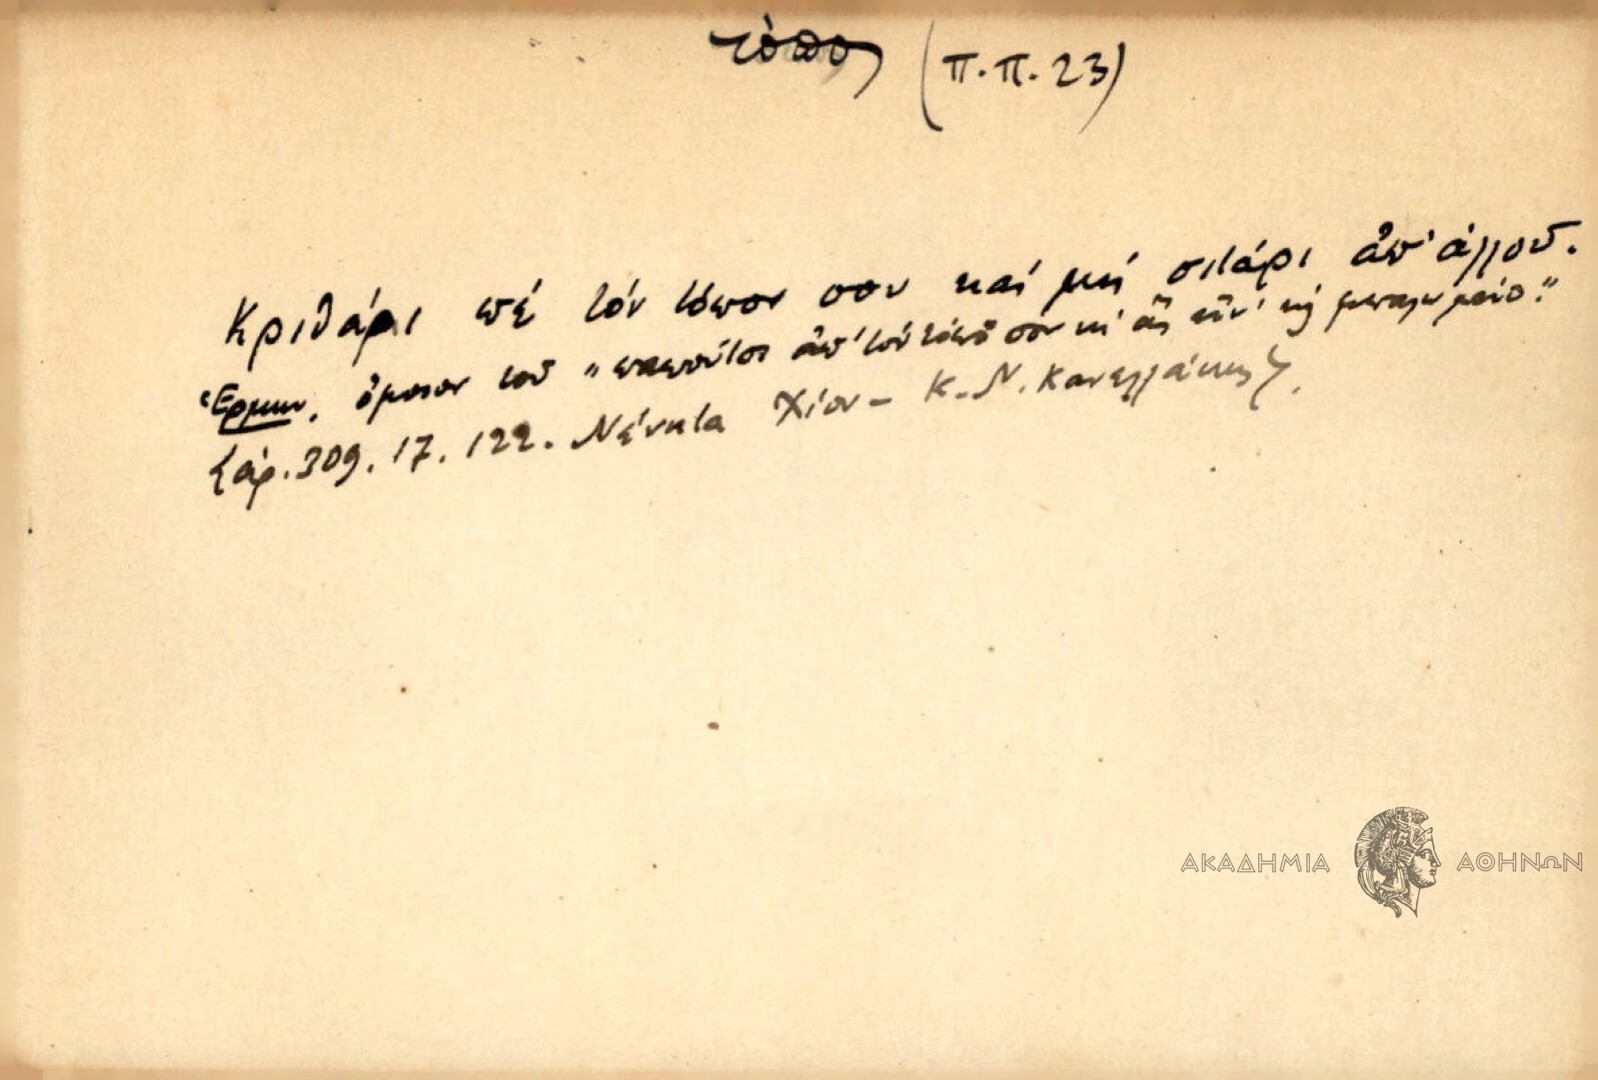 τόπος (π.π. 23)
Κριθάρι πέ τόν τόπον σου καί μή σιτάρι ἀπ' ἀλλοῦ.
Ἑρμην. ὅμοιον τοῦ "παπούτσι ἀπ' τόν τόπο σου κι ἄς εἶν' κῃ μπαλωμένο."
Λαρ. 309. 17. 122. Νένητα Χίου - Κ. Ν. Κανελλάκης.
ΑΚΑΔΗΜΙΑ ΑΘΗΝΩΝ